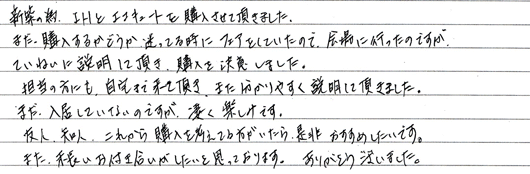 新築の際、IHとエコキュートを購入させて頂きました。
まだ、購入するかどうか迷ってる時にフェアをしていたので、会場に行ったのですが、
ていねいに説明して頂き、購入を決意しました。
担当の方にも、自宅まで来て頂き、また分かりやすく説明して頂きました。
まだ、入居していないのですが、凄く楽しみです。
友人、知人、これから購入を考えてる方がいたら、是非おすすめしたいです。
また、末長いお付き合いがしたいと思っております。 ありがとう御座いました。